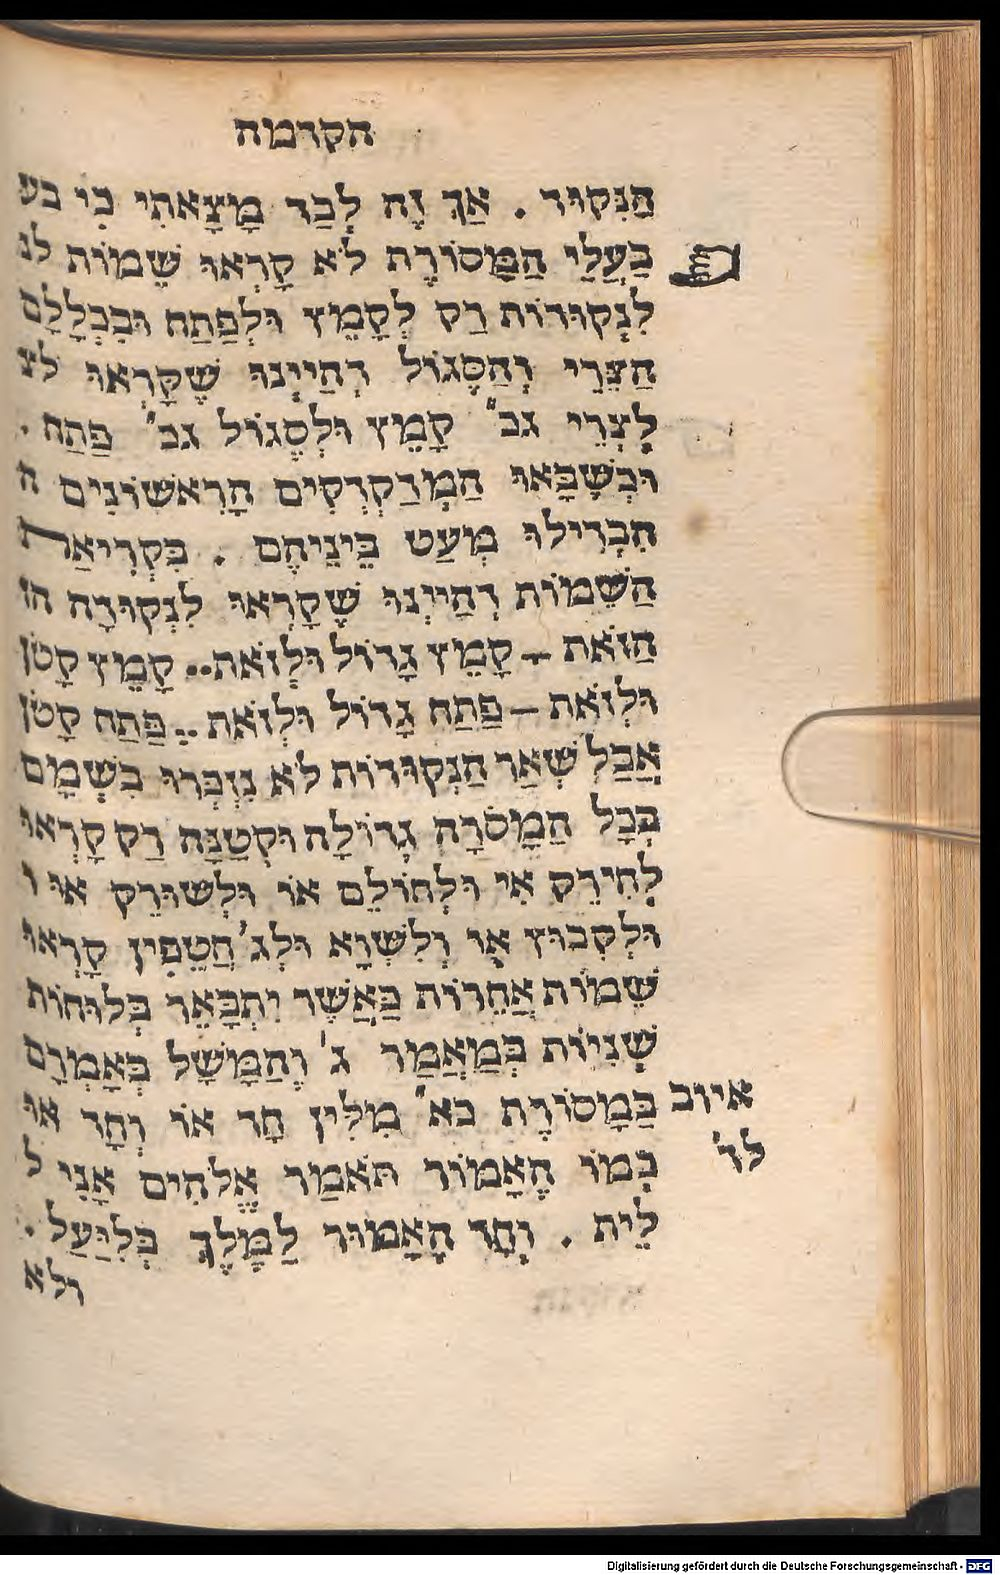 הקדמה
הַנִּקּוּד . אַךְ זֶה לְבַד מָצָאתִי כִּי בע
בַּעֲלֵי הַמָּסוֹרֶת לֹא קָרְאוּ שֵׁמוֹת לנ
לִנְקוּדּוֹת רַק לְקָמֵץ וּלְפַתַח וּבִכְלָלָם
הַצֵּרֵי וְהַסֶּגּוֹל דְּהַיְינוּ שֶׁקָּרְאוּ לצ
לְצֵרֵי גכ" קָמֵץ וּלְסֶגּוֹל גכ" פַּתַח .
וּכְשֶׁבָּאוּ הַמְדַקְדְּקִים הָרִאשׁוֹנִים ה
הִבְדִּילוּ מְעַט בֵּינֵיהֶם . בִּקְרִיאַת
הַשֵּׁמוֹת דְּהַיְינוּ שֶׁקָּרְאוּ לִנְקוּדָּה הז
הַזֹּאת ָ קָמֵץ גָּדוֹל וְלָזֹאת .. קָמֵץ קָטֹן
וּלְזֹאת ַ פַּתַח גָּדוֹל וּלְזֹאת ֶ פַּתַח קָטֹן
אֲבָל שְׁאַר הַנְּקוּדּוֹת לֹא נִזְכְּרוּ בִּשְׁמָם
בְּכָל הַמָּסֹרָה גְּדוֹלָה וּקְטַנָּה רַק קָרְאוּ
לְחִירֵק אִי וּלְחוֹלֵם אוֹ וּלְשׁוּרֵק אוּ ו
וּלְקִבּוּץ אֻ וְלִשְׁוָא וּלְג' חֲטֵפִין קָרְאוּ
שֵׁמוֹת אֲחֵרוֹת כַּאֲשֶׁר יִתְבָּאֵר בְּלוּחוֹת
שְׁנִיּוֹת בְּמַאֲמַר ג' וְהַמָּשָׁל בְּאָמְרָם
איוב בַּמָּסוֹרֶת כא" מִלִּין חַד אוֹ וְחַד אוּ
לד' כְּמוֹ הֶאָמוֹר תֹּאמַר אֱלֹהִים אֲנִי ל
לֵית . וְחַד הָאָמוּר לַמֶּלֶךְ בְּלִיַּעַל .
ולא
Digitalisierung gefördert durch die Deutsche Forschungsgemeinschaft - DFG